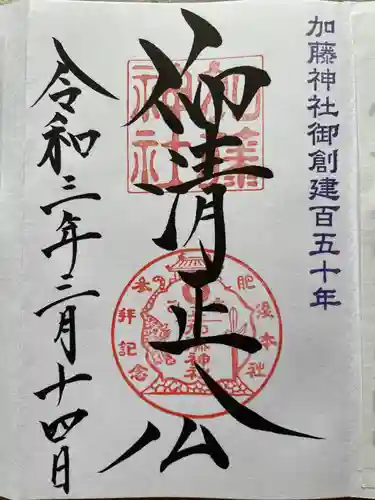 加藤神社御創建百五十年
仰清正公
加藤
神社
参拝記念
肥後本社
加藤神社
令和三年三月十四日